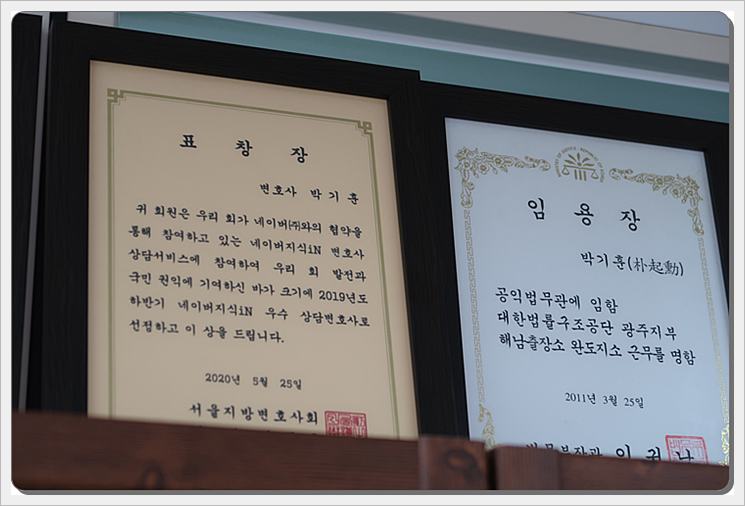 표 창 장
변호사 박 기 훈
귀 회원은 우리 회가 네이버(주)와의 협약을
통해 참여하고 있는 네이버지식iN 변호사
상담서비스에 참여하여 우리 회 발전과
국민 권익에 기여하신 바가 크기에 2019년도
하반기 네이버지식iN 우수 상담변호사로
선정하고 이 상을 드립니다.
2020년 5월 25일
서울지방변호사회
임 용 장
박기훈(朴起勳)
공익법무관에 임함
대한법률구조공단 광주지부
해남출장소 완도지소 근무를 명함
2011년 3월 25일
법무부장관 이 귀 남